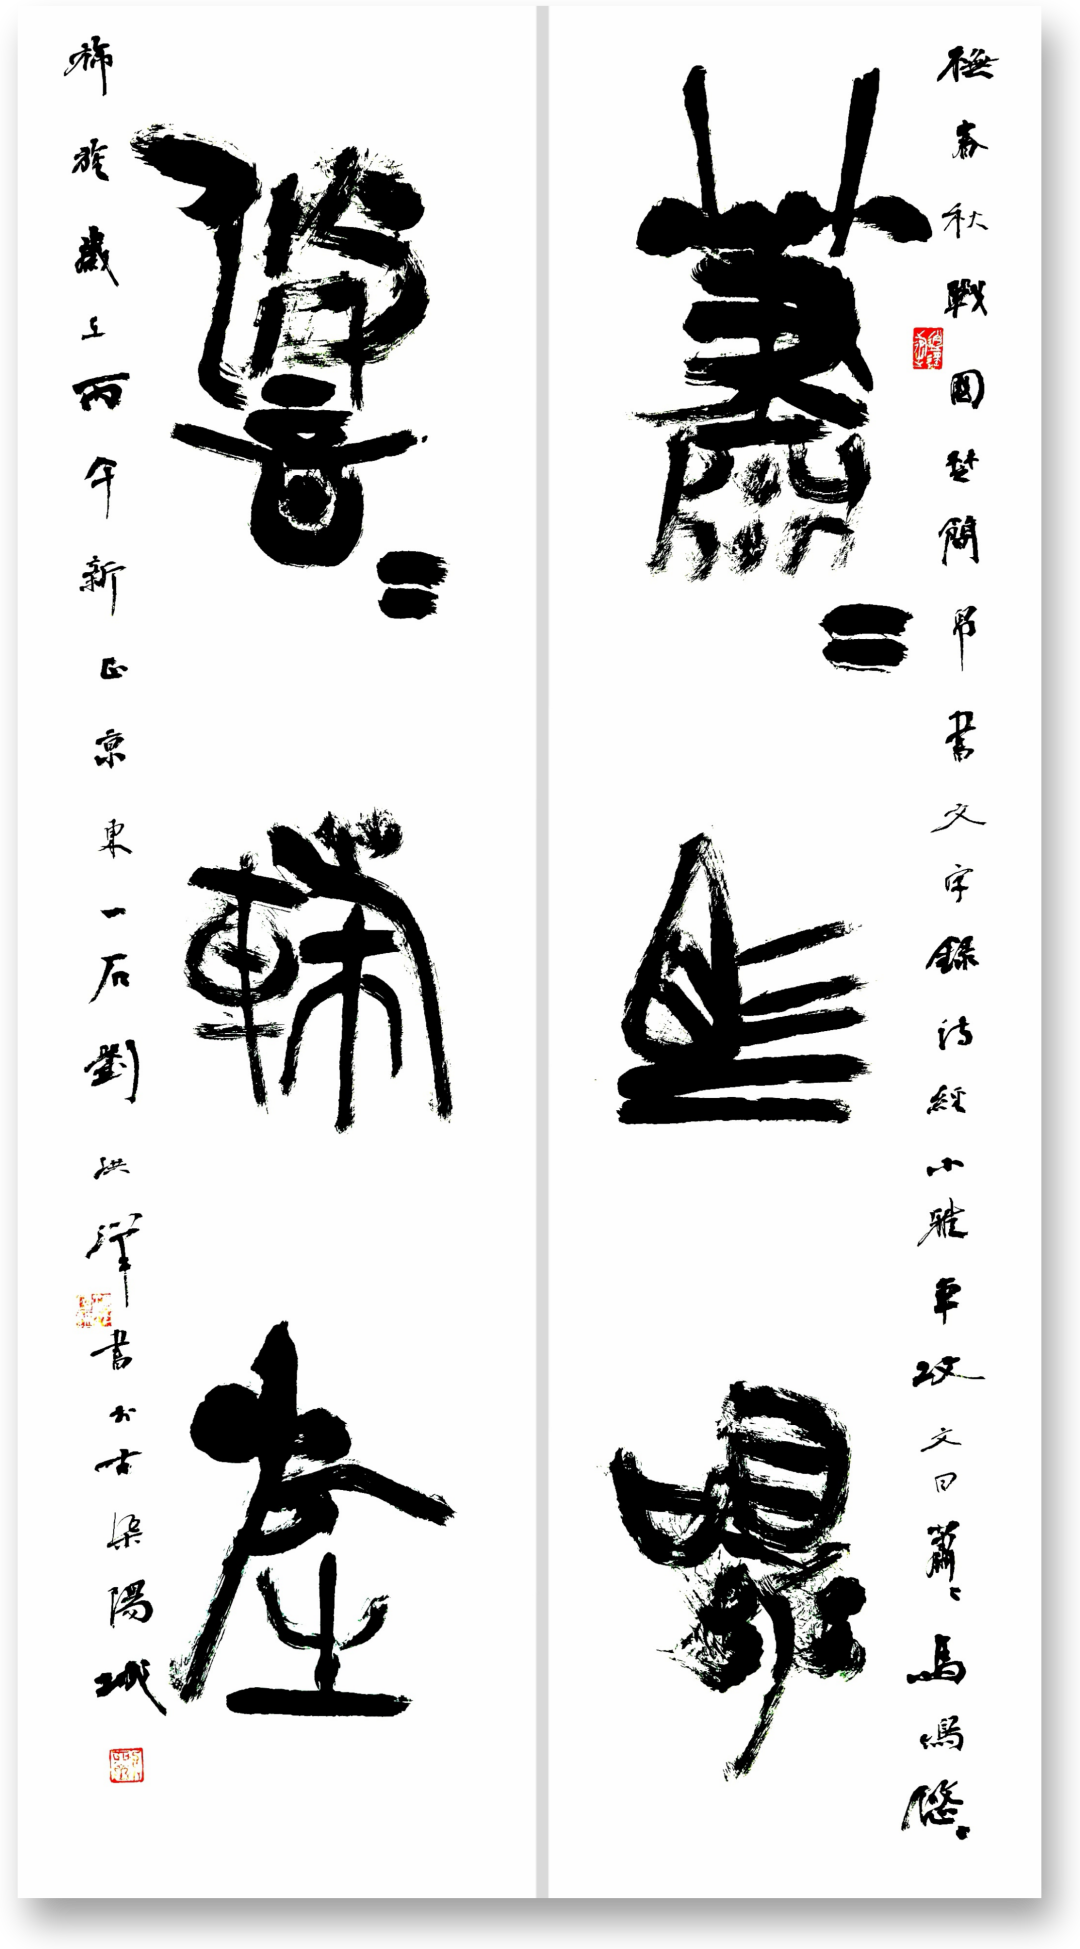 橅春秋戰國楚簡帛書文字錄詩經小雅車攻文曰蕭〻馬鳴悠〻
蕭〻馬鳴
悠〻旆旌
旆旌歲在丙午新正京東一石劉洪洋書於古渠陽城